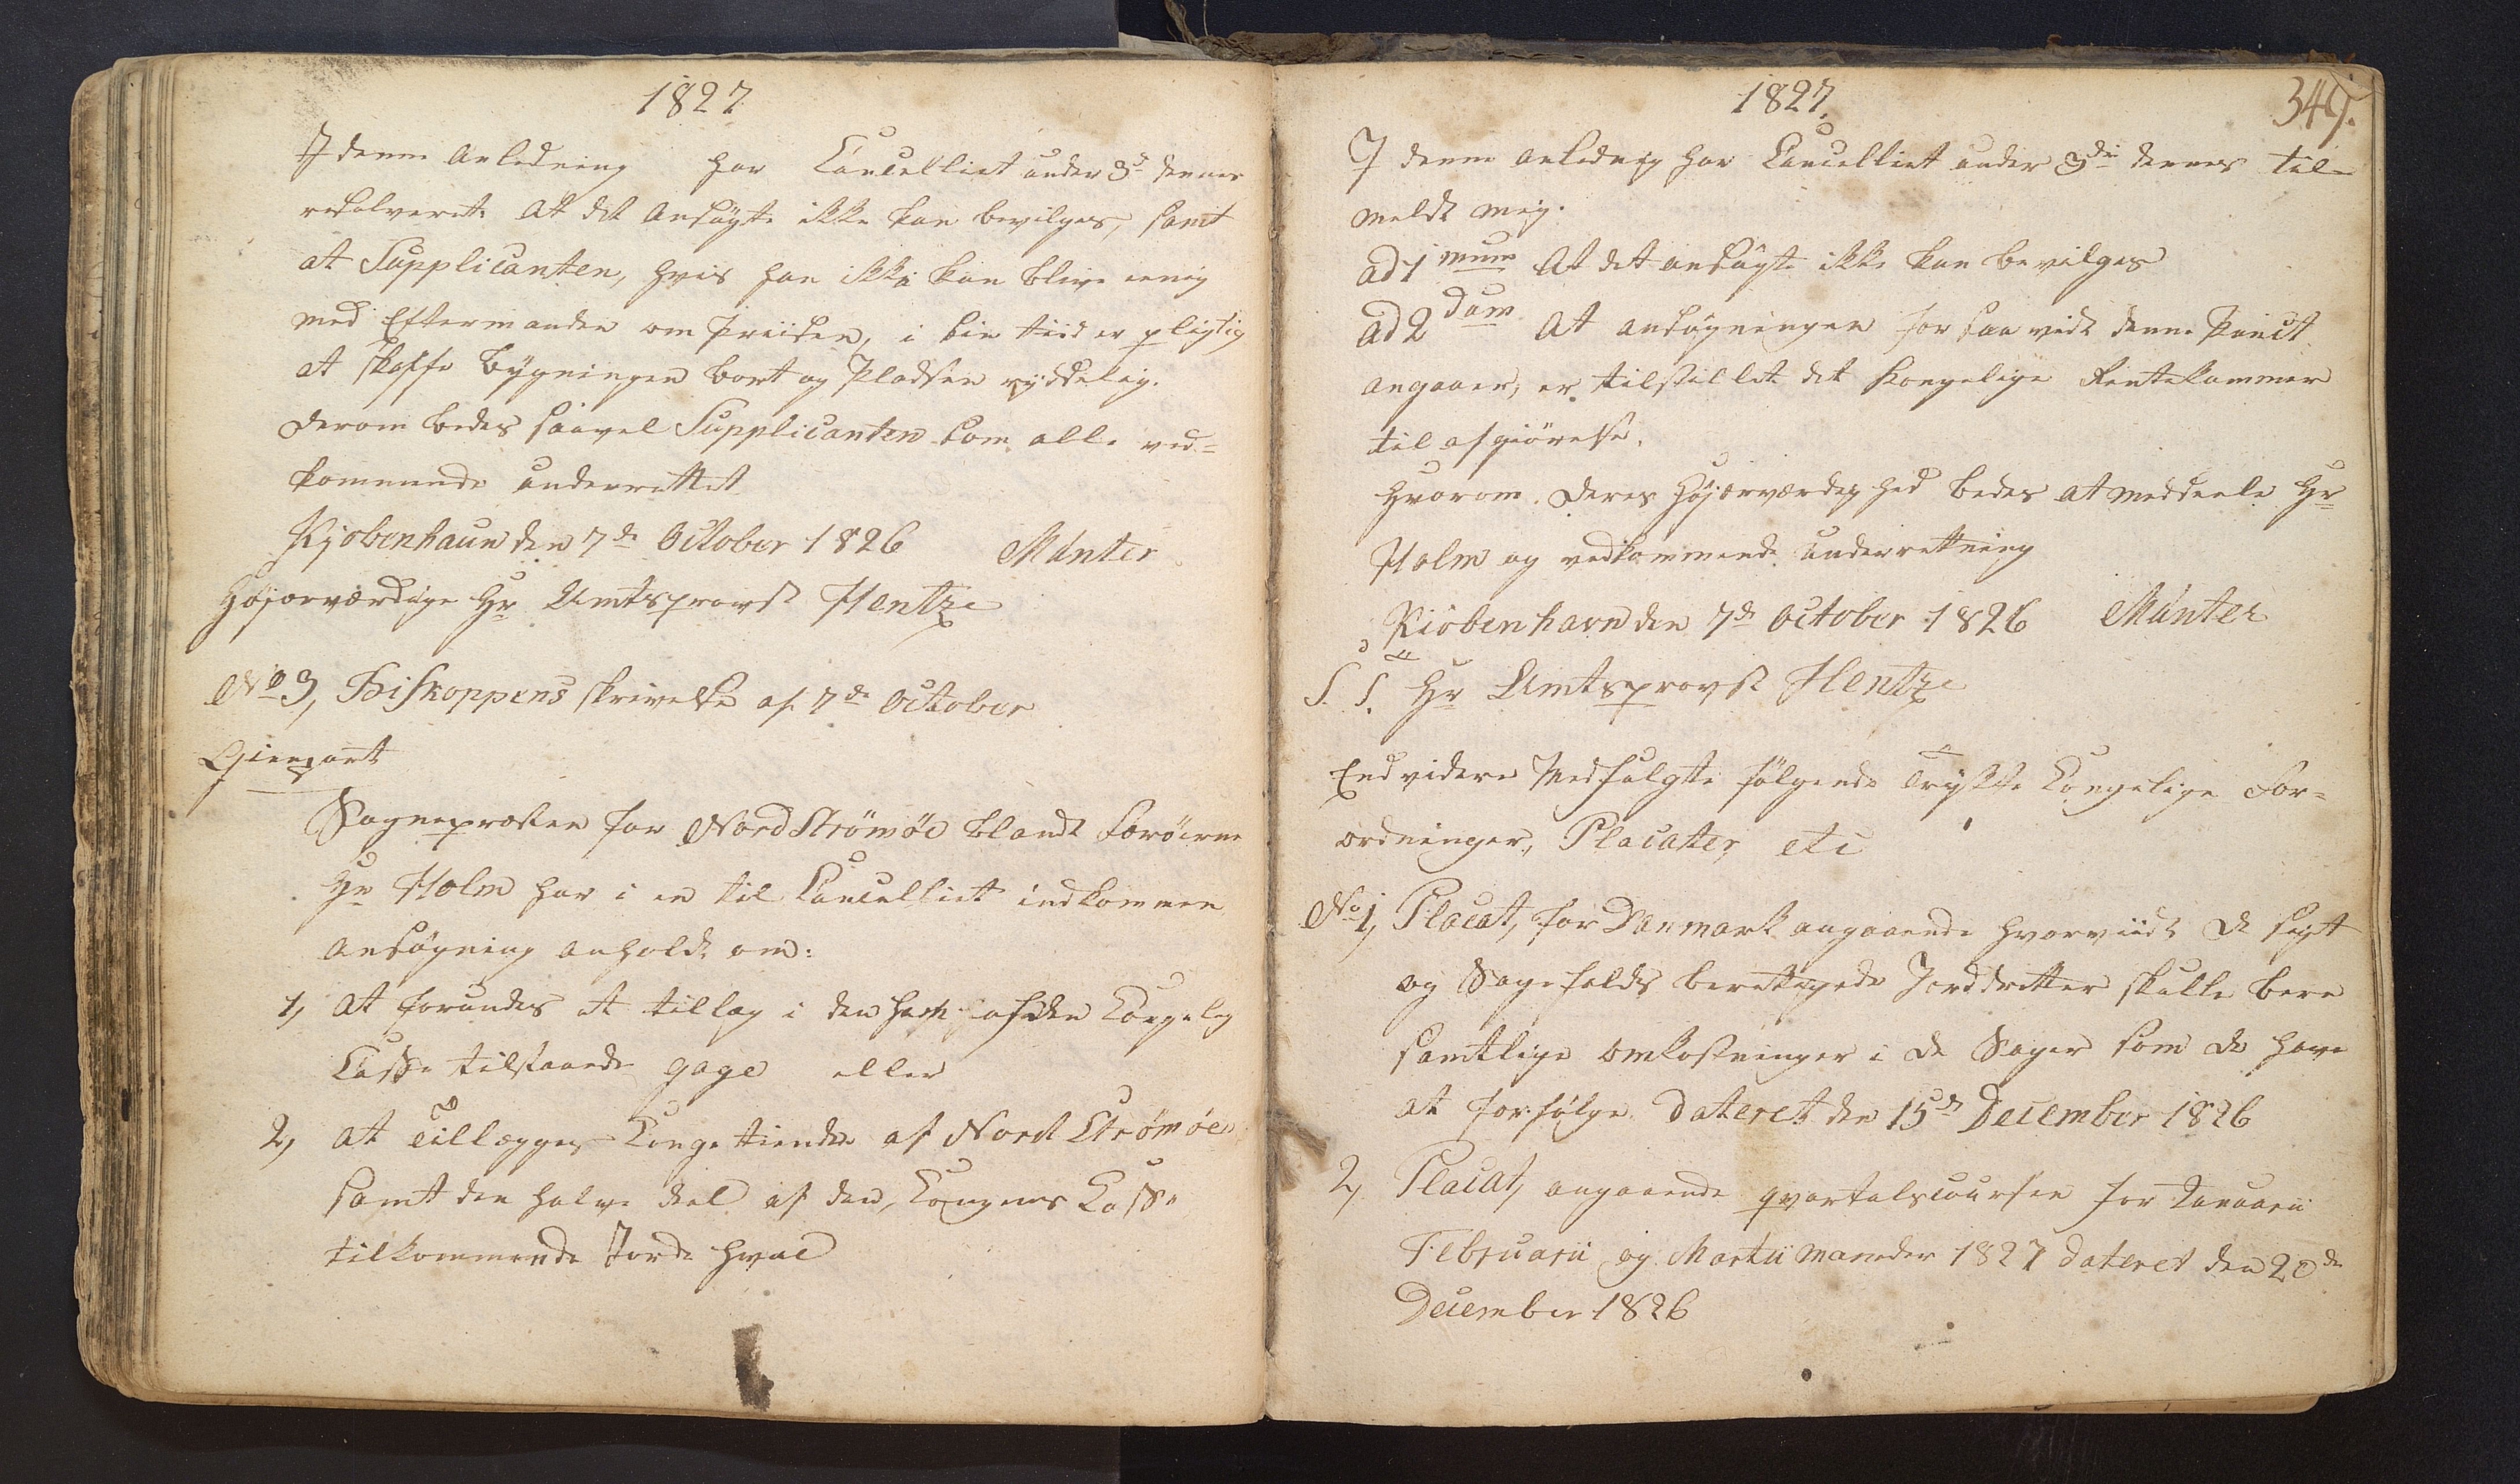 1827
I denne Anledning har Cancelliet under 3d dennes
resolveret: At det Ansøgte ikke kan bevilges, samt
at Supplicanten, hvis han ikke kan blive eenig
med Eftermanden om Priisen, i sin tiid er pligtig
at skaffe Bygningen bort og Pladsen ryddelig.
Derom bedes saavel Supplicanten som alle ved=
kommende underrettet
Kjøbenhaun den 7de October 1826 Münter
Højærværdige Hr Amtsprovst Hentze
No 3, Biskoppens skrivelse af 7de October
Gienpart
Sognepræsten for Nord Strømøe blandt Færøerne
Hr Holm har i en til Cancelliet indkommen
Ansøgning anholdt om:
1, at forundes et tillæg i den ham af den Kongelig
Casse tilstaaede gage eller
2, at Tillægges Kongetienden af Nord Strømøe
samt den halve deel af den, Kongens Casse
tilkommende Jorde hval
1827. 349.
I denne anledning har Cancelliet under 3die dennes til=
meldt mig.
ad 1mum At det ansøgte ikke kan bevilges
ad 2dum At ansøgningen for saavidt denne Punct
angaaer, er tilstillet det Kongelige Rentekammer
til afgiörelse.
Hvorom Deres Højærværdighed bedes at meddeele Hr
Holm og vedkommende underretning
Kiöbenhavn den 7de October 1826 Münter
S. S. Hr Amtsprovst Hentze
End videre Medfulgte følgende Trykte Kongelige For=
ordninger, Placater, etc
No 1, Placat, for Danmark angaaende hvorviidt de sigt
og Sagefalds berettigede Jorddrotter skulle bere
samtlige omkostninger i de Sager som de have
at forfølge. dateret den 15de December 1826
2, Placat, angaaende qvartalscoursen for Januarii
Februarii og Martii Maaneder 1827 dateret den 20de
December 1826